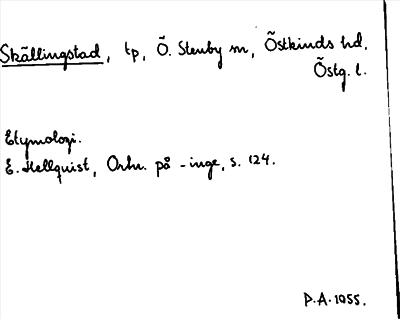 Skällingstad, tp, Ö. Stenby sn, Östkinds hd,
Östg. l.
Etymologi.
E. Hellquist, Ortn. på -inge, s. 124.
P.A. 1055.